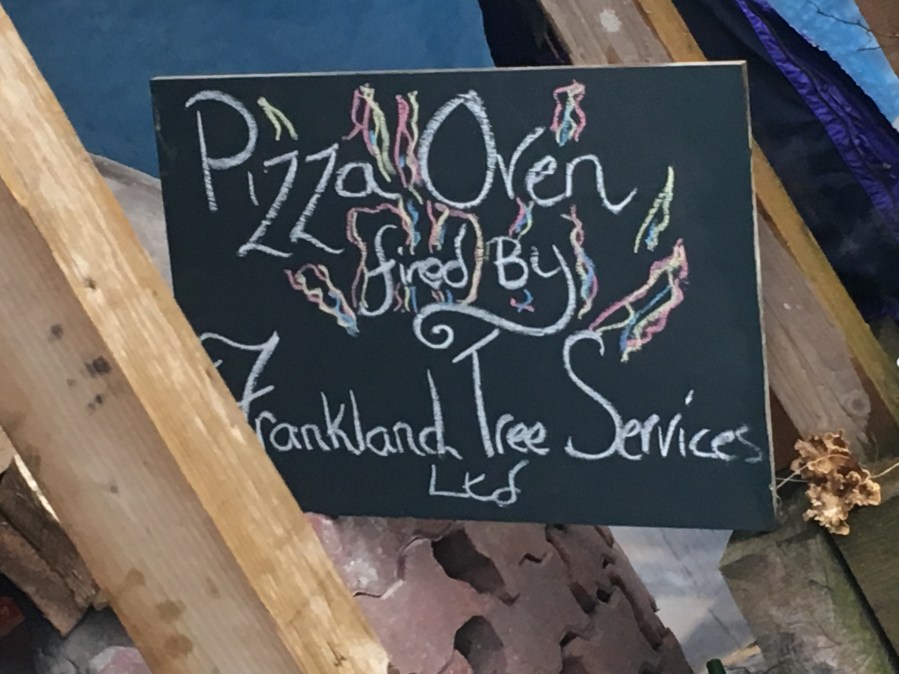 Pizza Oven
fired By
Frankland Tree Services
Ltd